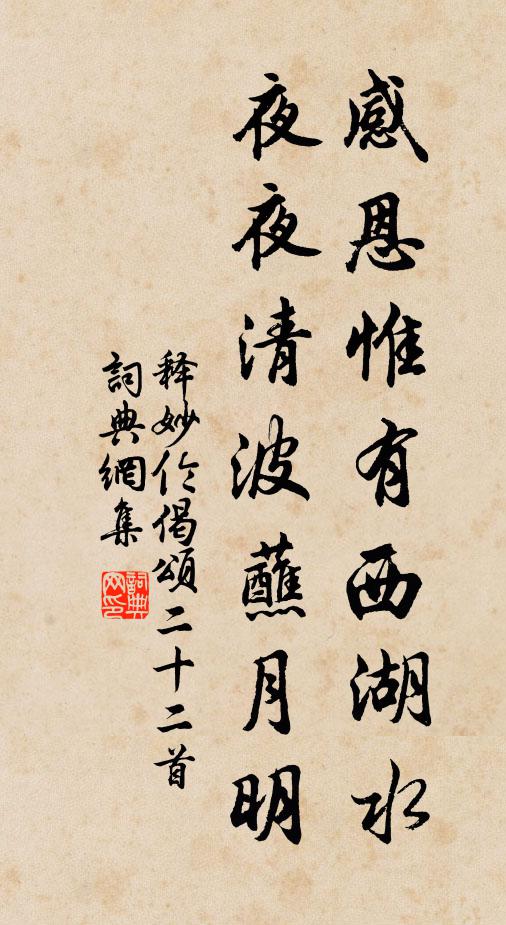 感恩惟有西湖水
夜夜清波蘸月明
释妙伦偈頌二十二首
詞典網集
詞典
网印